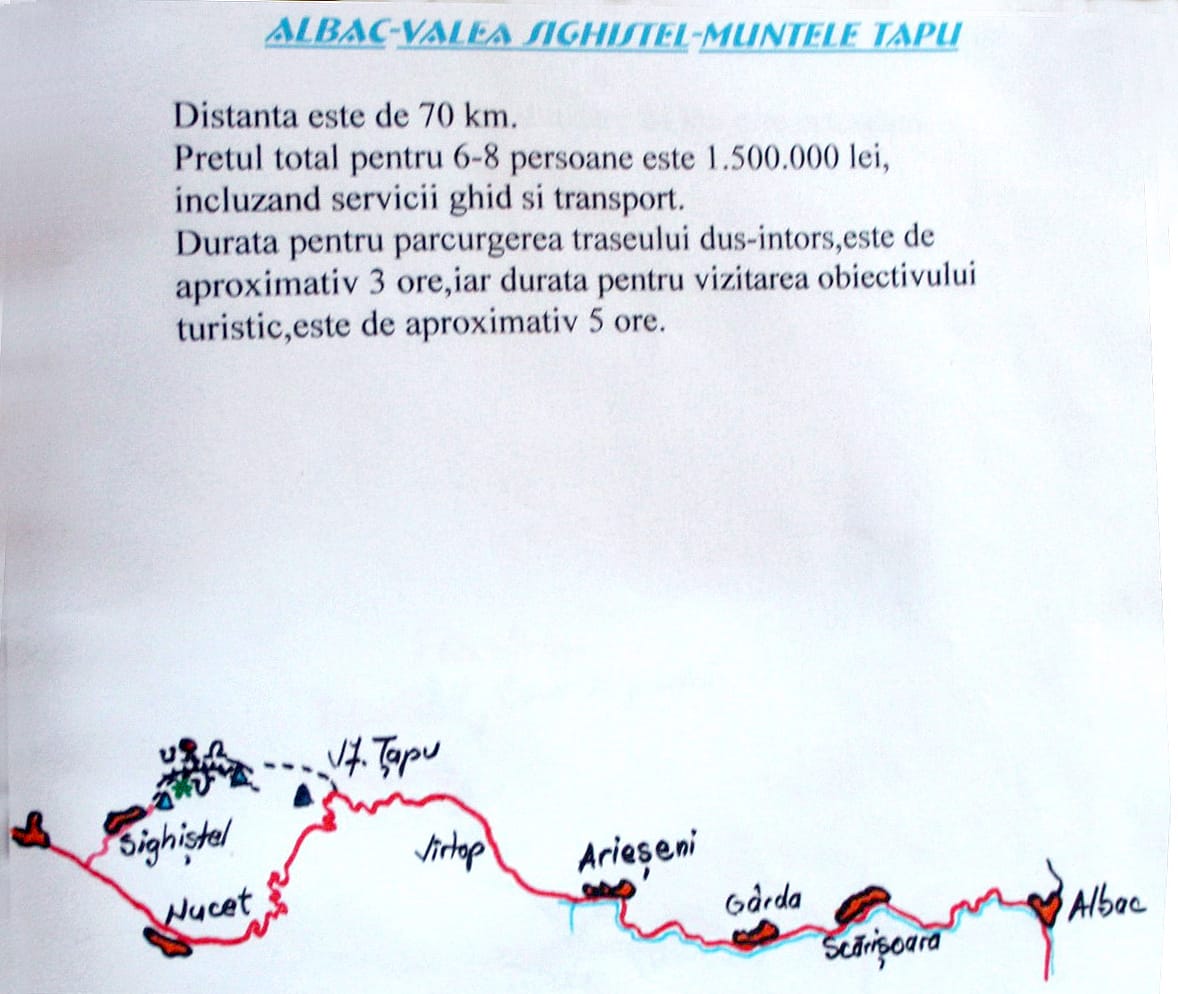 ALBAC-VALEA SIGHISTEL-MUNTELE TAPU
Distanta este de 70 km.
Pretul total pentru 6-8 persoane este 1.500.000 lei,
incluzand servicii ghid si transport.
Durata pentru parcurgerea traseului dus-intors,este de
aproximativ 3 ore,iar durata pentru vizitarea obiectivului
turistic,este de aproximativ 5 ore.
Vf. Țapu
Sighiștel
Vîrtop
Arieșeni
Nucet
Gârda
Scărișoara
Albac